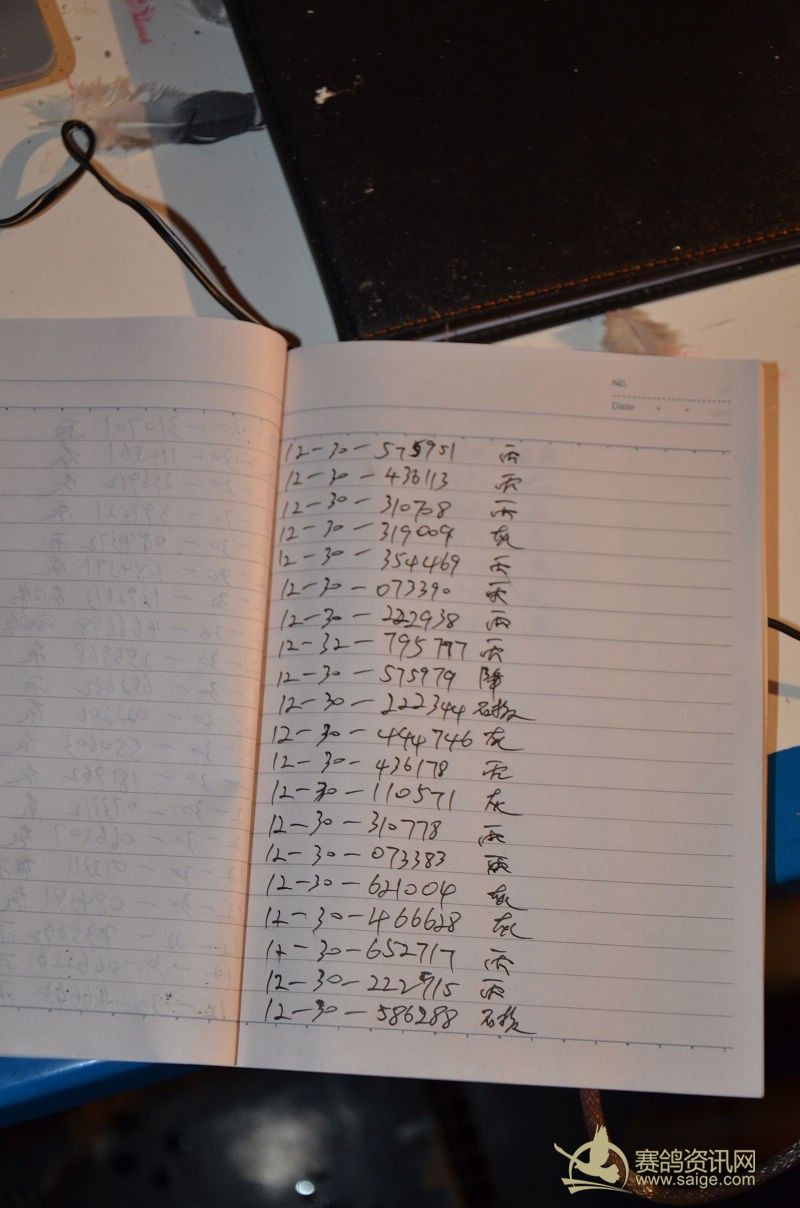 No.
Date
12-30-575951 雨
12-30-436113 雨
12-30-310708 雨
12-30-319009 灰
12-30-354469 雨
12-30-073390 雨
12-30-222938 雨
12-32-795777 雨
12-30-575979 降
12-30-222344 石板
12-30-494746 灰
12-30-436178 雨
12-30-110571 灰
12-30-310778 雨
12-30-073383 雨
12-30-621004 灰
12-30-466628 灰
12-30-652717 雨
12-30-222915 雨
12-30-586288 石板
赛鸽资讯网
www.saige.com